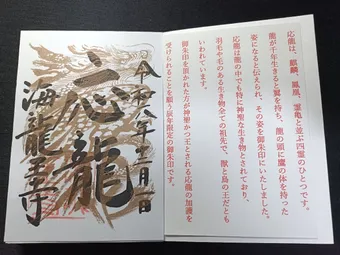 応龍は、麒麟、鳳凰、霊亀と並ぶ四霊のひとつです。
龍が千年生きると翼を持ち、龍の頭に鷹の体を持った
姿になると伝えられ、その姿を御朱印にいたしました。
応龍は龍の中でも特に神聖な生き物とされており、
羽毛や毛のある生き物全ての祖先で、獣と鳥の王だとも
いわれています。
御朱印を頂かれた方が神聖かつ王とされる応龍の加護を
受けられることを願う辰年限定の御朱印です。
令和六年
応龍
海龍王寺